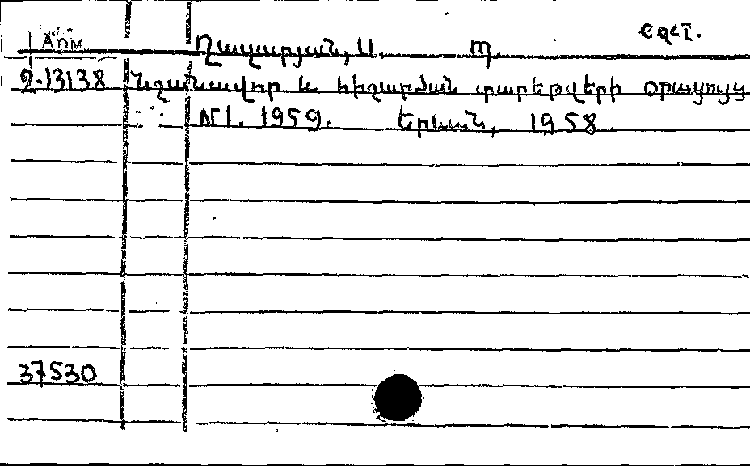 Арм. Ղազարյան, Ա.
2-13138 Նշանավոր և հիշարժան տարեթվերի օրացույց
№1. 1959. Երևան, 1958
37530